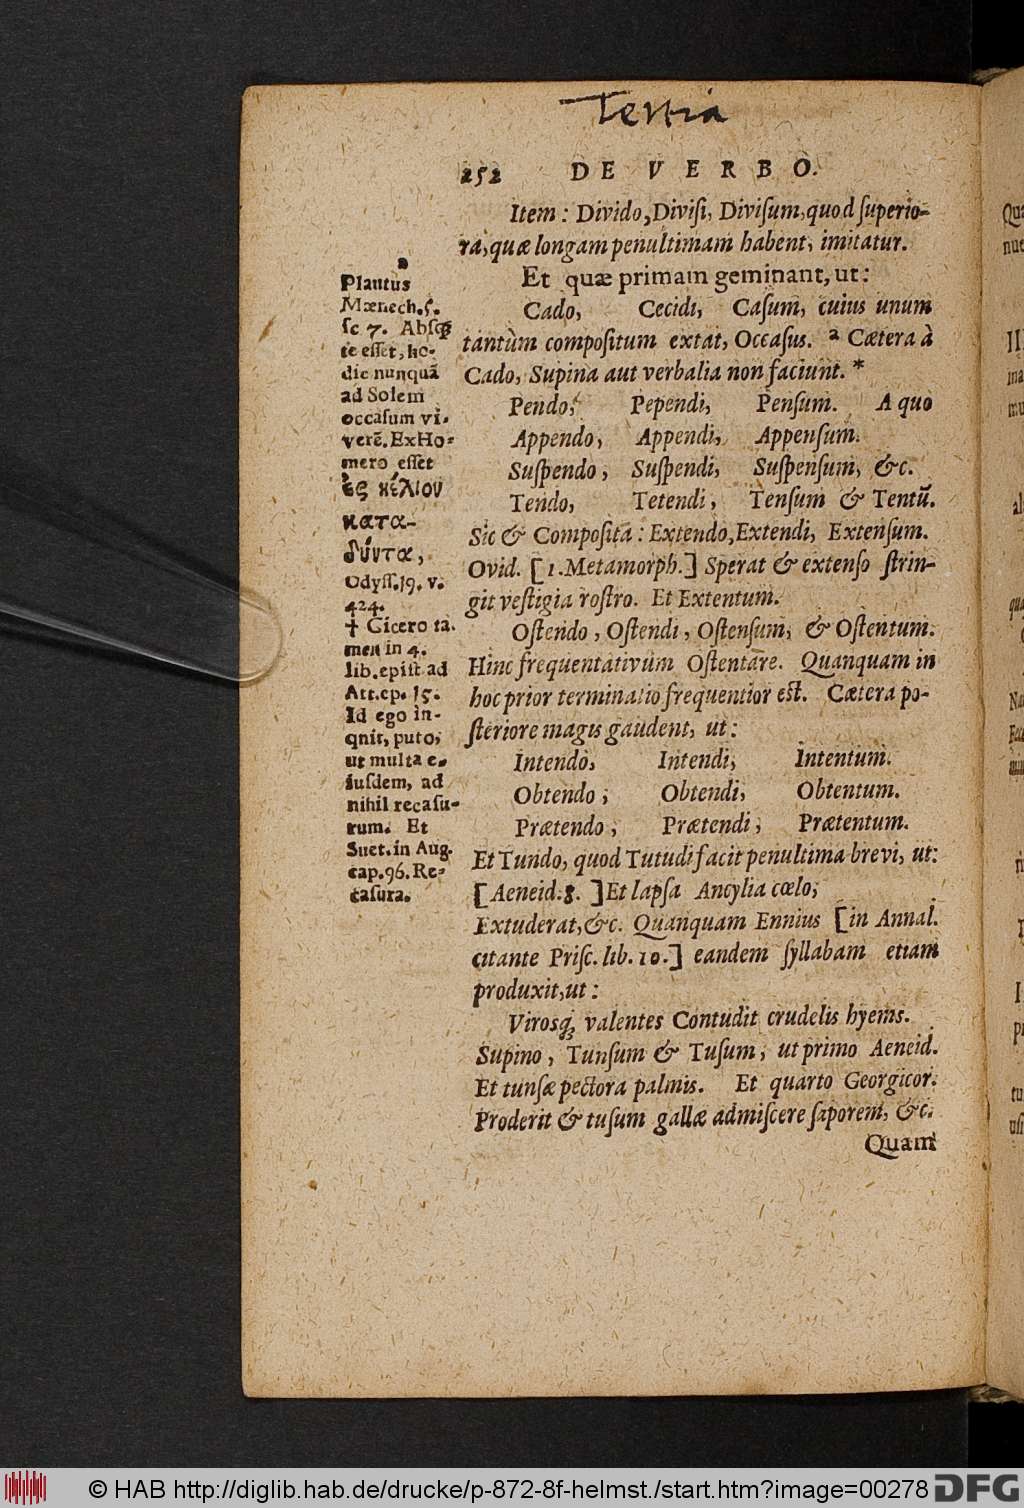 Tertia
252 DE VERBO.
Item: Divido, Divisi, Divisum, quod superio-
ra, quæ longam penultimam habent, imitatur.
Et quæ primam geminant, ut:
Cado, Cecidi, Casum, cuius unum
tantùm compositum extat, Occasus. a Cætera à
Cado, Supina aut verbalia non faciunt. *
Pendo, Pependi, Pensum. A quo
Appendo, Appendi, Appensum.
Suspendo, Suspendi, Suspensum, &c.
Tendo, Tetendi, Tensum & Tentū.
Sic & Composita: Extendo, Extendi, Extensum.
Ovid. [1. Metamorph.] Sperat & extenso strin-
git vestigia rostro. Et Extentum.
Ostendo, Ostendi, Ostensum, & Ostentum.
Hinc frequentativum Ostentare. Quanquam in
hoc prior terminatio frequentior est. Cætera po-
steriore magis gaudent, ut:
Intendo, Intendi, Intentum.
Obtendo, Obtendi, Obtentum.
Prætendo, Prætendi, Prætentum.
Et Tundo, quod Tutudi facit penultima brevi, ut:
[Aeneid. 8.] Et lapsa Ancylia cœlo,
Extuderat, &c. Quanquam Ennius [in Annal.
citante Prisc. lib. 10.] eandem syllabam etiam
produxit, ut:
Virosq; valentes Contudit crudelis hyems.
Supino, Tunsum & Tusum, ut primo Aeneid.
Et tunsæ pectora palmis. Et quarto Georgicor.
Proderit & tusum gallæ admiscere saporem, &c.
Quam
a
Plautus
Mænech. 5.
sc 7. Absq;
te esset, ho-
die nunquā
ad Solem
occasum vi-
verē. Ex Ho-
mero esset
ἐς ἠέλιον
κατα-
δύντα,
Odyss. 19. v.
424.
† Cicero ta-
men in 4.
lib. epist ad
Att. ep. 15.
Id ego in-
qnit, puto,
ut multa e-
iusdem, ad
nihil recasu-
rum. Et
Suet. in Aug.
cap. 96. Re-
casura.
© HAB http://diglib.hab.de/drucke/p-872-8f-helmst./start.htm?image=00278 DFG